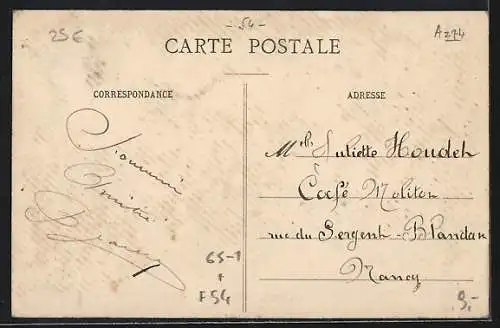 25€
- 54 -
A274
CARTE POSTALE
CORRESPONDANCE
ADRESSE
Souvenir
Amitié
Mlle Juliette Houdeh
à
Café Molitor
rue du Sergent - Blandan
Nancy
65-1
+
F54
9,-